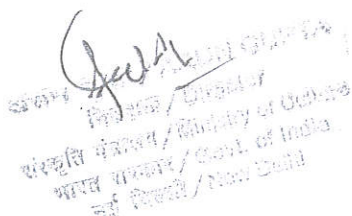 GUPTA
निदेशक / Director
संस्कृति मंत्रालय / Ministry of Culture
भारत सरकार / Govt. of India
नई दिल्ली / New Delhi